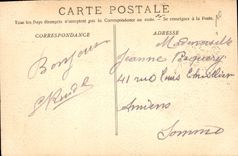 CARTE POSTALE
Tous les Pays étrangers n'acceptent pas la Correspondance au verso. Se renseigner à la Poste.
CORRESPONDANCE
ADRESSE
Bonjour
Mademoiselle
Jeanne
41 rue Louis
Amiens
Somme